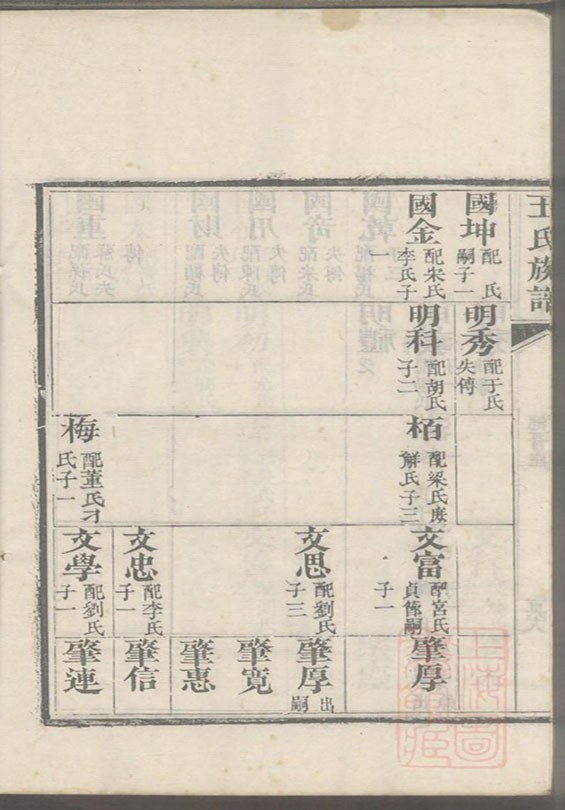 王氏族譜
國坤
配 氏
嗣子一
國金
配朱氏
李氏子
一
明秀
配于氏
失傳
明科
配胡氏
子二
栢
配梁氏庶
解氏子三
梅
配董氏刁
氏子一
文富
配宮氏
子一
文思
配劉氏
子三
文忠
配李氏
子一
文學
配劉氏
子一
肇厚
肇厚
出
嗣
肇寬
肇惠
肇信
肇連